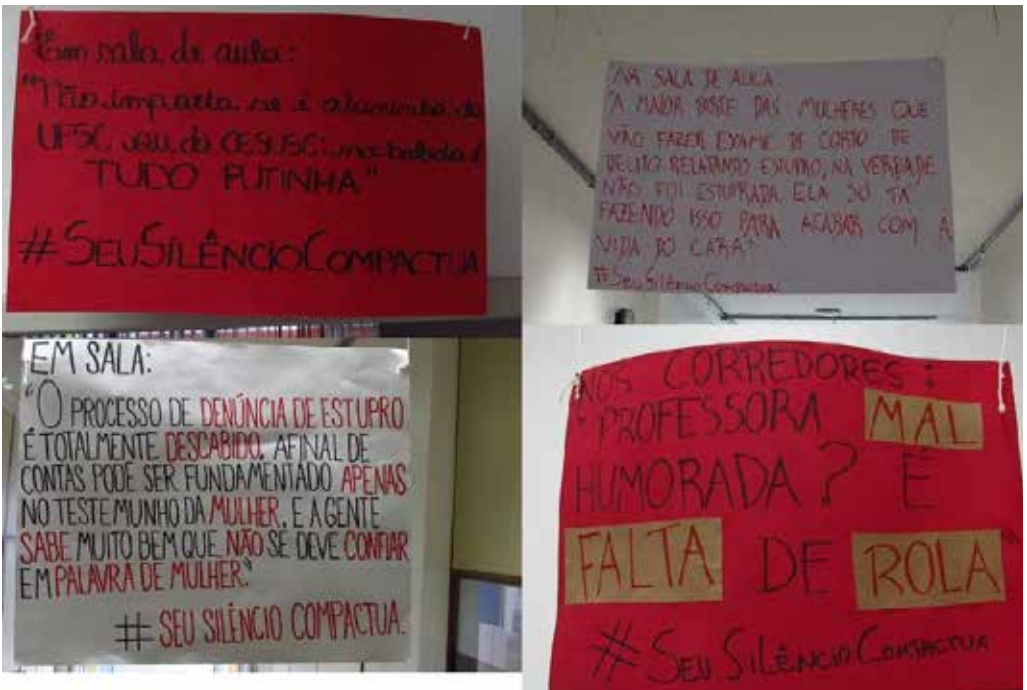 Em sala de aula:
"Não importa se é aluninha da
UFSC ou do CESUSC; na balada é
TUDO PUTINHA"
#SEUSILÊNCIOCOMPACTUA
NA SALA DE AULA:
"A MAIOR PARTE DAS MULHERES QUE
VÃO FAZER EXAME DE CORPO DE
DELITO RELATANDO ESTUPRO, NA VERDADE
NÃO FOI ESTUPRADA, ELA SÓ TÁ
FAZENDO ISSO PARA ACABAR COM A
VIDA DO CARA"
#SeuSilêncioCompactua
EM SALA:
"O PROCESSO DE DENÚNCIA DE ESTUPRO
É TOTALMENTE DESCABIDO, AFINAL DE
CONTAS PODE SER FUNDAMENTADO APENAS
NO TESTEMUNHO DA MULHER, E A GENTE
SABE MUITO BEM QUE NÃO SE DEVE CONFIAR
EM PALAVRA DE MULHER."
# SEU SILÊNCIO COMPACTUA.
NOS CORREDORES:
"PROFESSORA MAL
HUMORADA? É
FALTA DE ROLA"
#SEUSILÊNCIOCOMPACTUA